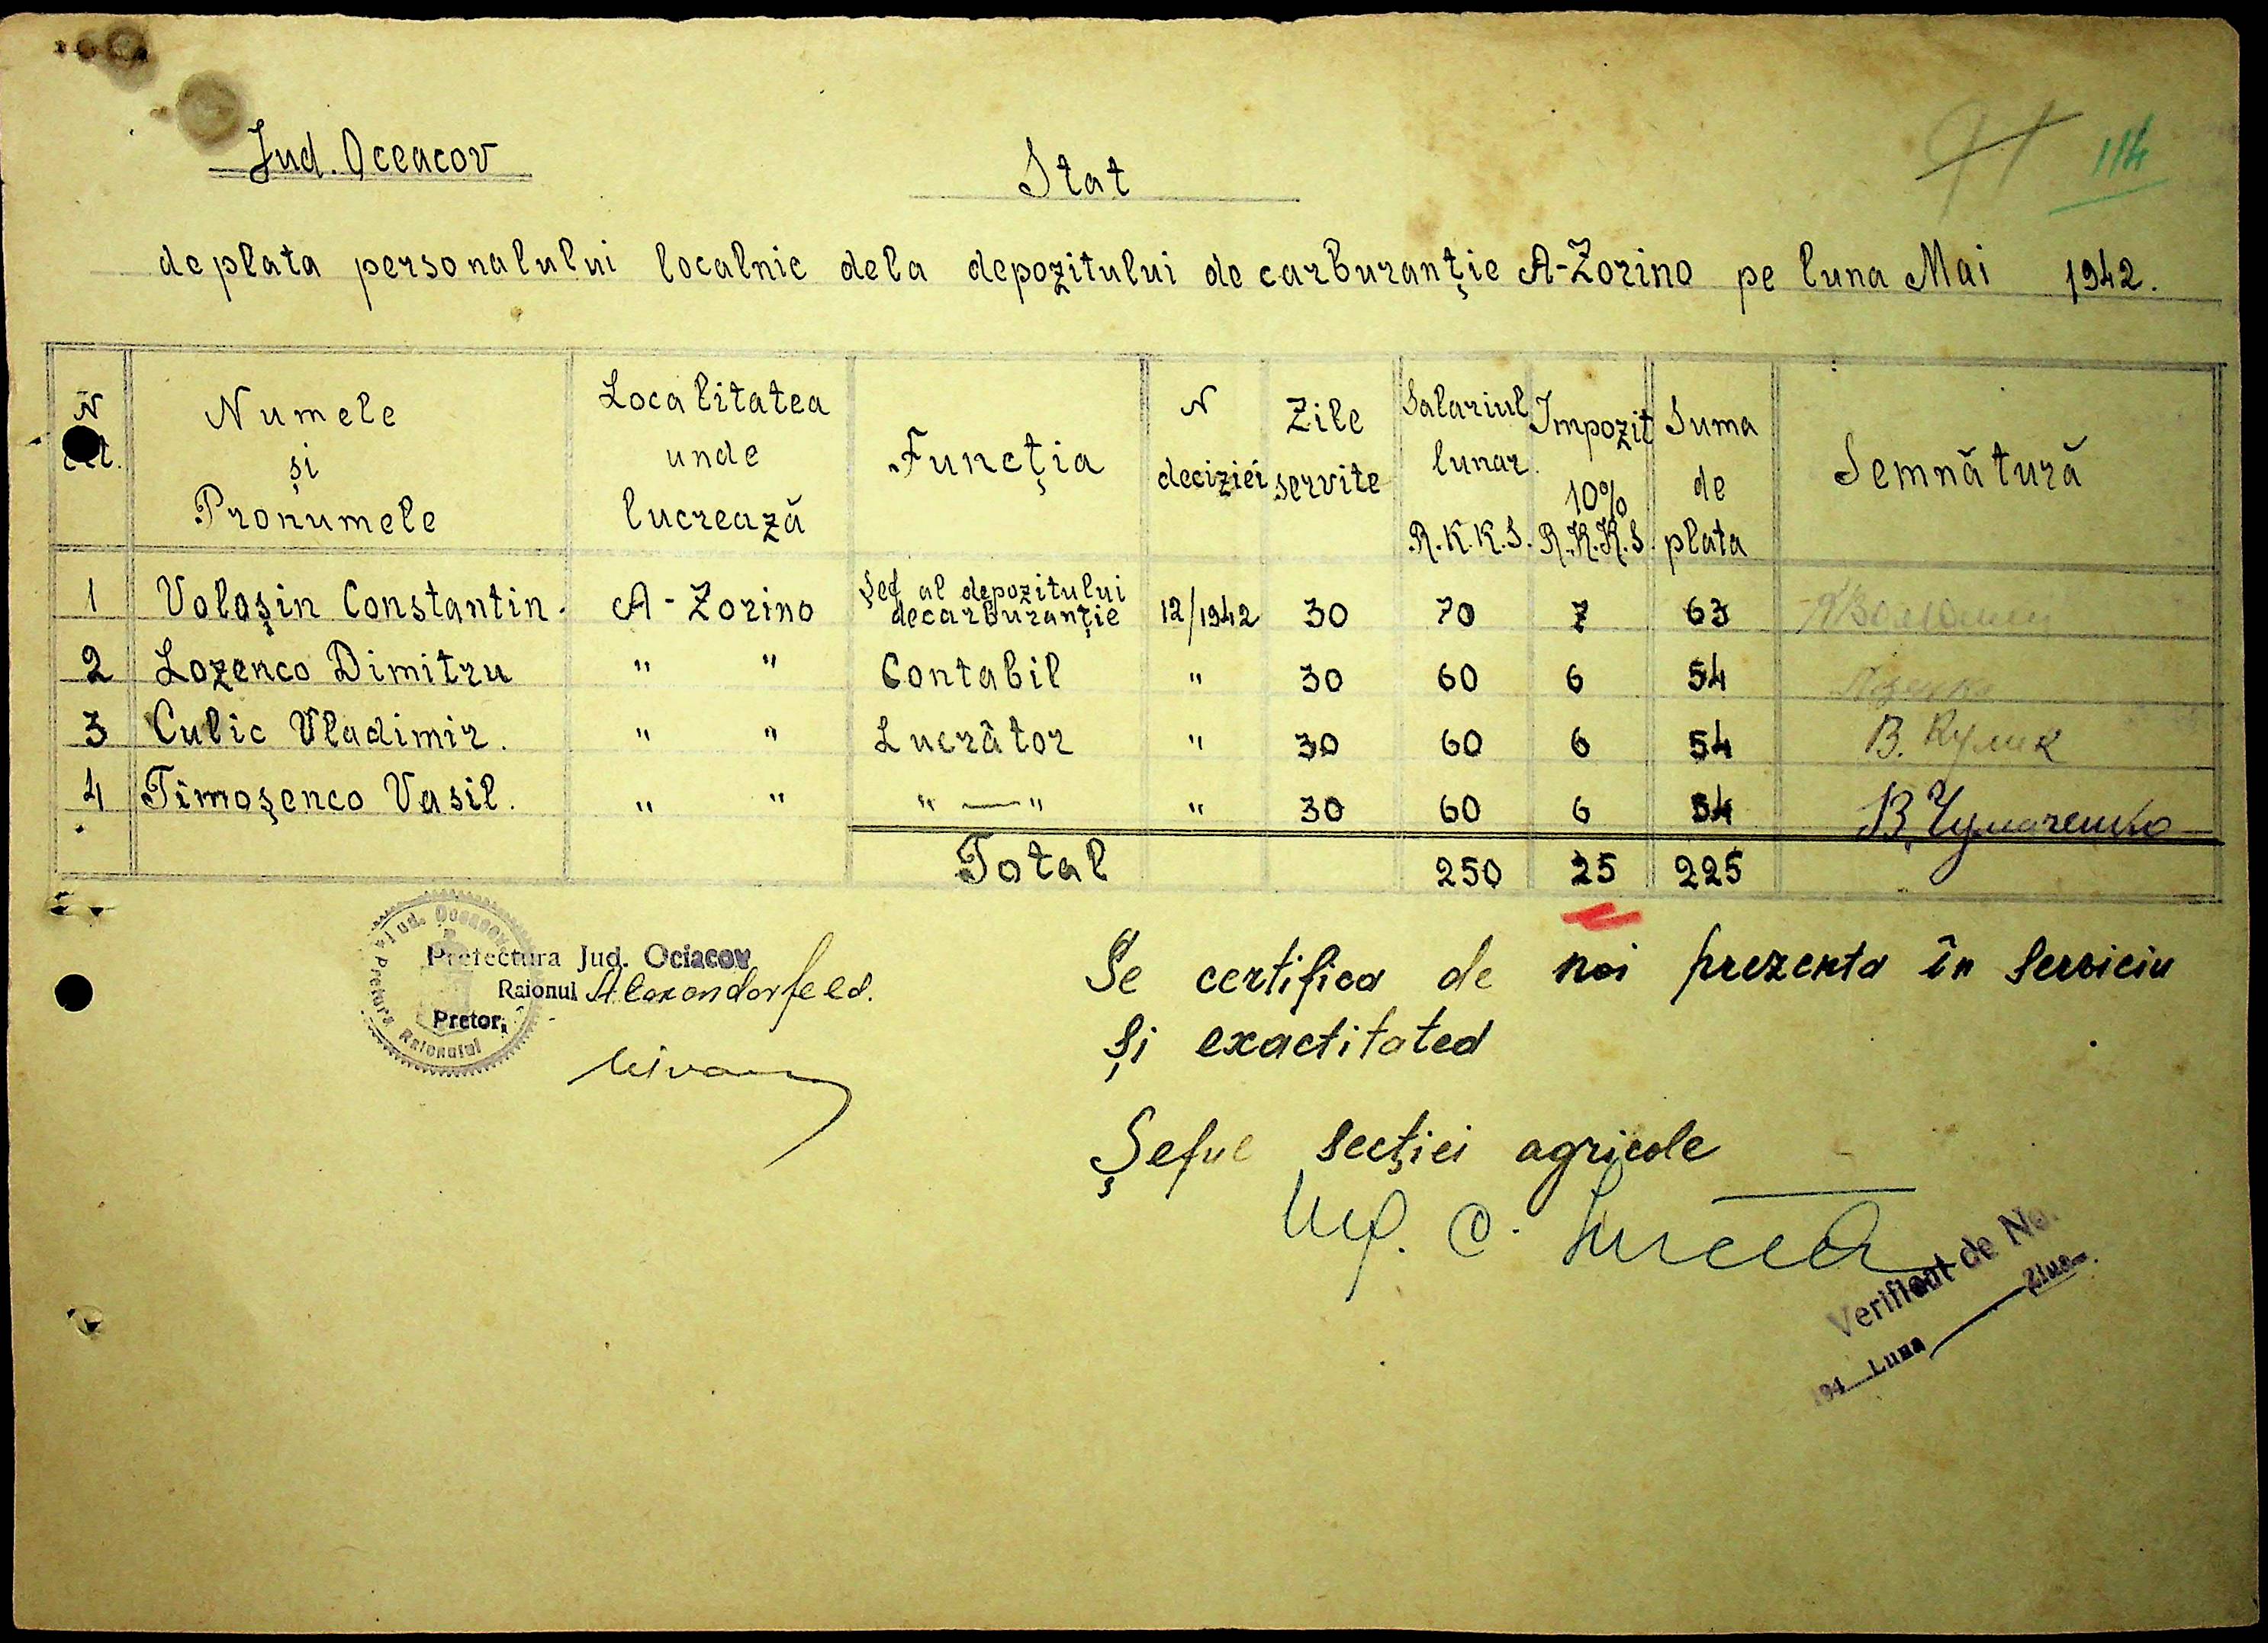 114
Jud. Oceacov
Stat
de plata personalului localnic dela depozitului de carburanţie A-Zorino pe luna Mai 1942.
N
crt.
Numele
şi
Pronumele
Localitatea
unde
lucrează
Funcţia
N
deciziei
Zile
servite
Salariul
lunar
R.K.K.S.
Impozit
10%
R.K.K.S.
Suma
de
plata
Semnătură
1 Voloşin Constantin. A-Zorino Şef al depozitului decarburanţie 12/1942 30 70 7 63
2 Lozenco Dimitru " " Contabil " 30 60 6 54
3 Culic Vladimir. " " Lucrător " 30 60 6 54 В. Кулик
4 Timoşenco Vasil. " " " — " " 30 60 6 54 В. Чумаченко
Total 250 25 225
Prefectura Jud. Ociacov
Raionul Alexandorfeld.
Pretor,
Jud. Oceacov
Pretura Raionului
Se certifica de noi prezenta în serviciu
şi exactitated
Şeful secţiei agricole
Ing. C.
Verificat de No.
194 Luna Ziua